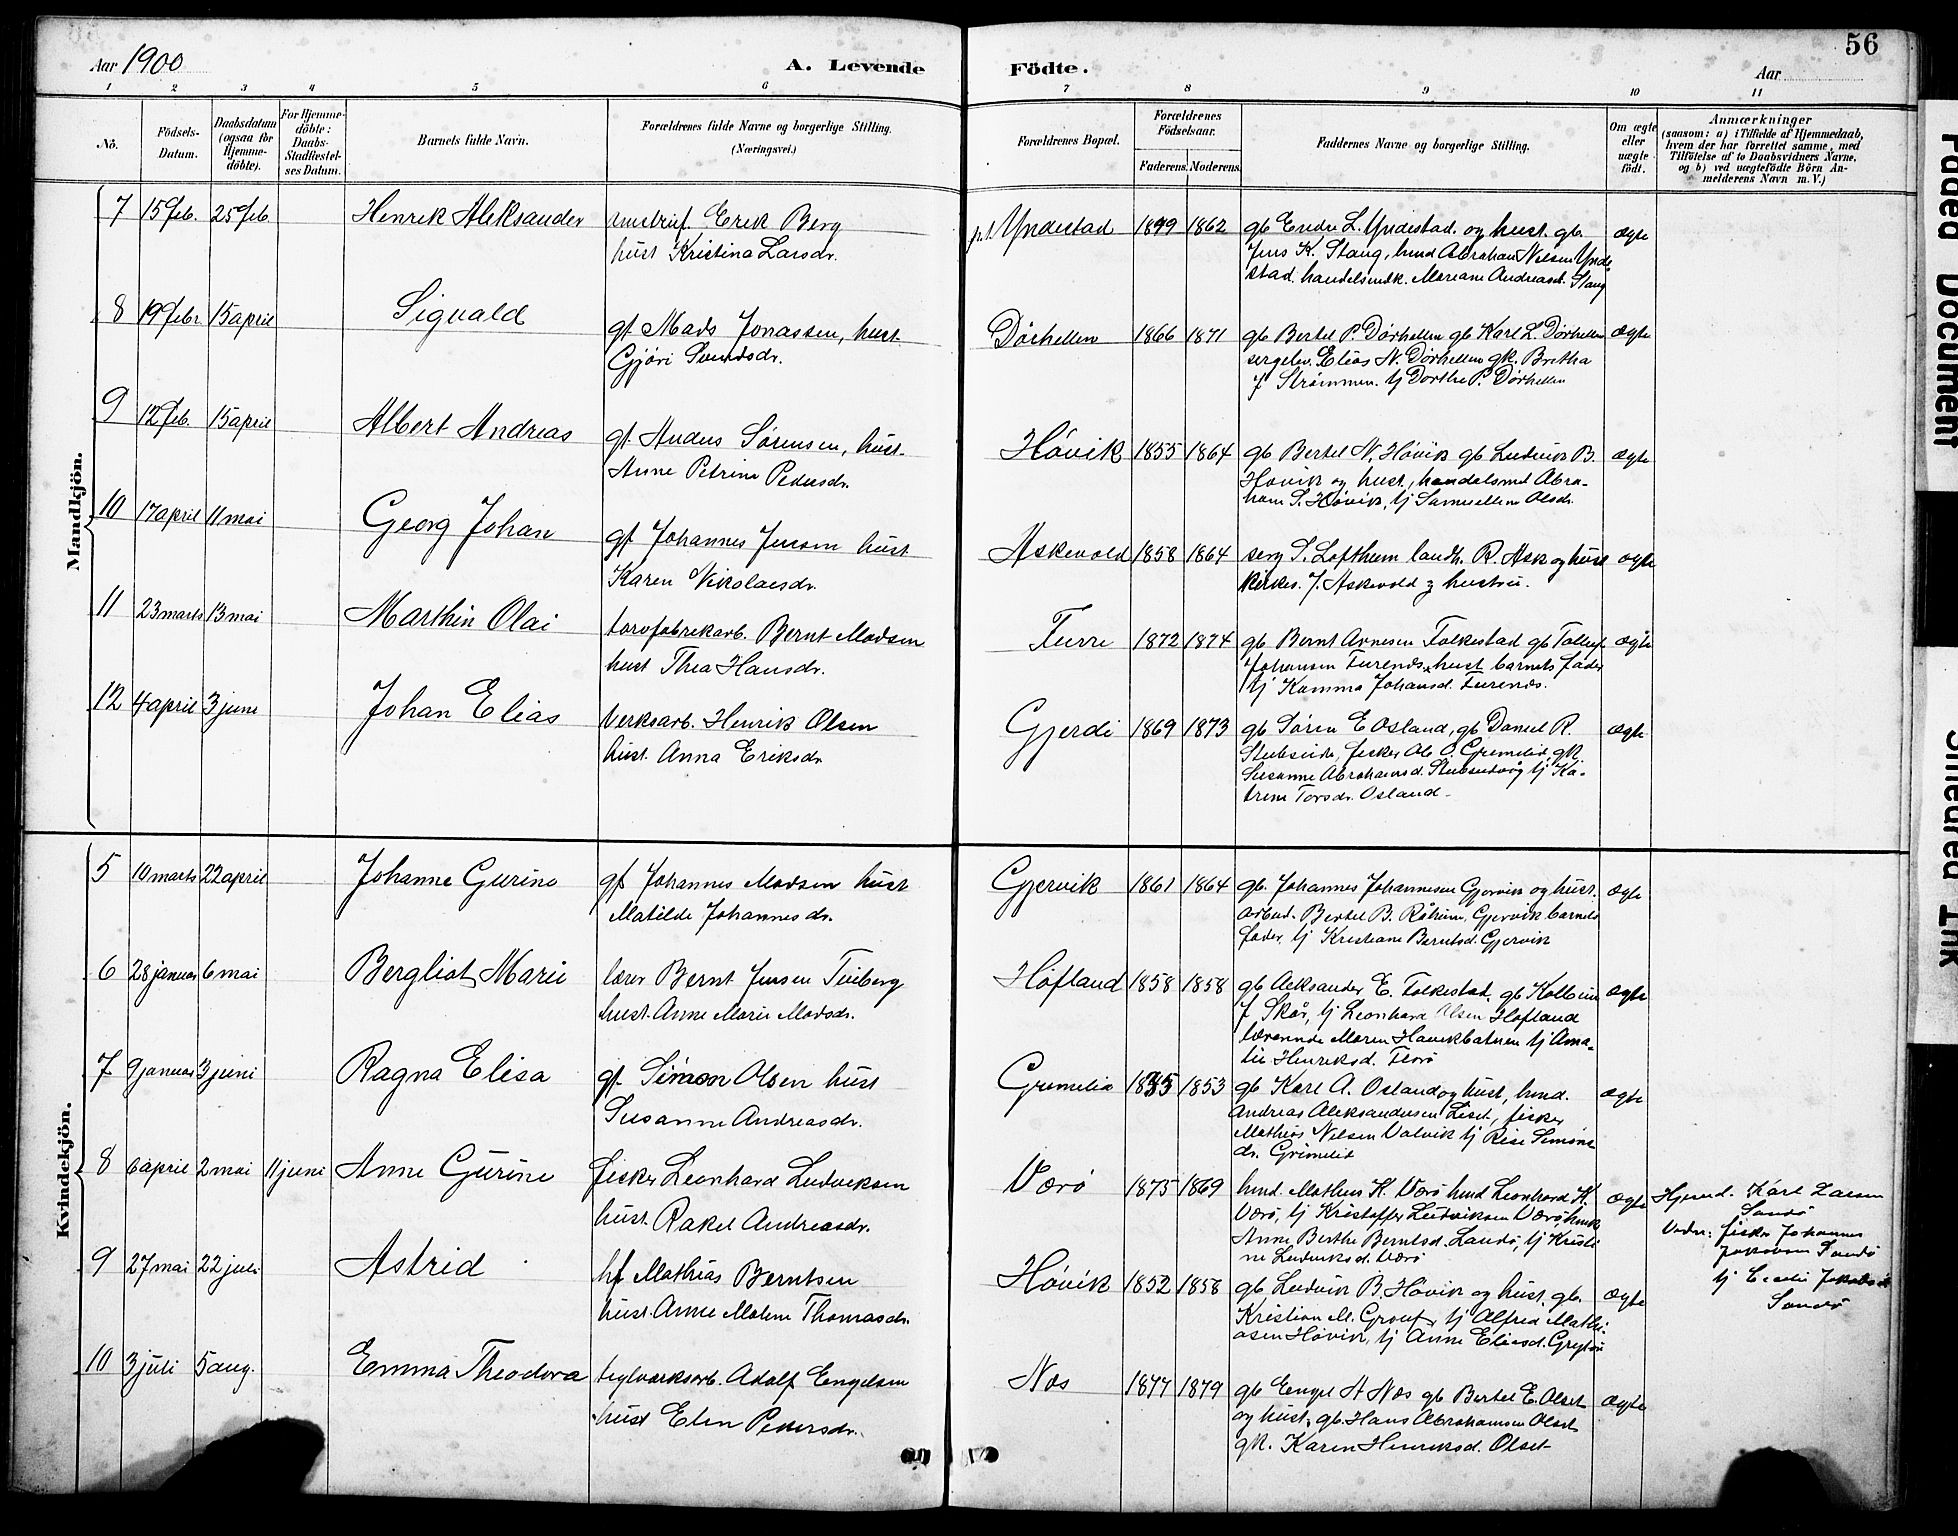 56
Aar 1900
A. Levende Födte.
Aar
1 2 3 4 5 6 7 8 9 10 11
Nö.
Födsels-
Datum.
Daabsdatum
(ogsaa for
Hjemme-
döbte).
For Hjemme-
döbte:
Daabs-
Stadfæstel-
ses Datum.
Barnets fulde Navn.
Forældrenes fulde Navne og borgerlige Stilling.
(Næringsvei.)
Forældrenes Bopæl.
Forældrenes
Födselsaar.
Faderens. Moderens.
Faddernes Navne og borgerlige Stilling.
Om ægte
eller
uægte
födt.
Anmærkninger
(saasom: a) i Tilfælde af Hjemmedaab,
hvem der har forrettet samme, med
Tilföielse af to Daabsvidners Navne,
og b) ved uægtefödte Börn An-
melderens Navn m. V.)
Mandkjön.
7 15 feb. 25 feb. Henrik Aleksander Erik Berg
hust Kristina Larsdr.
p.t. Yndestad 1899 1862 gb Endre L. Yndestad og hust. gb.
Jens K. Stang, hmd Abraham Nilsen Ynde
stad. handelsmdk. Mariane Andreasd. Stang
ægte
8 19 febr 15 april Sigvald gf Mads Jonassen, hust.
Gjöri Sevndsdr.
Dörhellen 1866 1871 gb Bertel P. Dörhellen gb Karl L. Dörhellen
sergelev. Elias N. Dörhellen gk. Bretha
J. Strömmen. tj Dorthe P. Dörhellen
ægte
9 12 feb. 15 april Albert Andreas gf Anders Sörensen, hust.
Anne Petrine Pedersdr.
Hövik 1855 1864 gb Bertel N. Hövik gb Ludvik B.
Hövik og hust., handelsmd Abra-
ham S. Hövik, tj Samuelline Olsdr.
ægte
10 17 april 11 mai Georg Johan gf Johannes Jenson hust
Karen Nikolaisdr.
Askevold 1858 1864 serg S. Loftheim landh. R. Ask og hust
kirkes. J. Askevold og hustru.
ægte
11 23 marts 13 mai Marthin Olai torvfabrikarb. Bernt Madsen
hust Thea Hansdr.
Furre 1872 1874 gb Bernt Arnesen Folkestad gb Tollef
Johansen Furenes, hust barnets fader
tj Kamma Johansd. Furenes.
ægte
12 4 april 3 june Johan Elias Verksarb. Henrik Olsen
hust. Anna Eriksdr
Gjerde 1869 1873 gb Sören E Osland, gb Daniel R.
Stubseide, fisker Ole O. Grimelid, gk
Susanne Abrahamsd. Stubseidvåg tj Ka-
trine Torsdr. Osland.
ægte
Kvindekjön.
5 10 marts 22 april Johanne Gurine gf Johannes Madsen hust
Matilde Johannesdr.
Gjervik 1861 1864 gb. Johannes Johannesen Gjervik og hust.
arbeid. Bertel B. Råheim, Gjervik barnets
fader, tj Kristiane Berntsd. Gjervik
ægte
6 28 januar 6 mai Bergliot Marie lærer Bernt Jensen Teiberg
hust. Anne Marie Madsdr.
Höfland 1858 1858 gb Aleksander E. Folkestad, gb Kolbein
J Skår, tj Leonhard Olsen Höfland
lærerinde Maren Havikbatnen tj Ama-
lie Henriksd. Florö
ægte
7 9 januar 3 juni Ragna Elisa gf. Simon Olsen hust
Susanne Andreasdr.
Grimelid 1855 1853 gb Karl A. Osland og hust, hmd.
Andreas Aleksandersen Liset, fisker
Mathias Nilsen Valvik tj Rise Simons
dr. Grimelid
ægte
8 6 april 2 mai 11 juni Anne Gurine fisker Leonhard Ludviksen
hust. Rakel Andreasdr.
Værö 1875 1869 hmd. Mathias K. Værö hmd Leonhard K.
Værö, tj Kristoffer Ludviksen Værö hmk
Anne Berthe Berntsd. Landö, tj Kristi
ne Ludviksd. Værö
ægte
Hjemd. Karl Larsen
Sandö
Vedn: fisker Johannes
Jakobsen Sandö
tj Jakobsd
Sandö
9 27 mai 22 juli Astrid hf Mathias Berntsen
hust. Anne Malene Thomasdr.
Hövik 1852 1858 gb Ludvik B. Hövik og hust, gb.
Kristian M. Grove, tj Alfred Mathi-
asen Hövik, tj Anne Eliasd.
ægte
10 3 juli 5 aug. Emma Theodora teglverksarb. Adolf Engelsen
hust Elen Pedersdr.
Nes 1877 1879 gb Engel A Nes gb Bertel E. Olset
og hust, gb. Hans Abrahamsen Olset
gk. Karen Henriksd. Olset
ægte
Faded Document
Smeared Ink